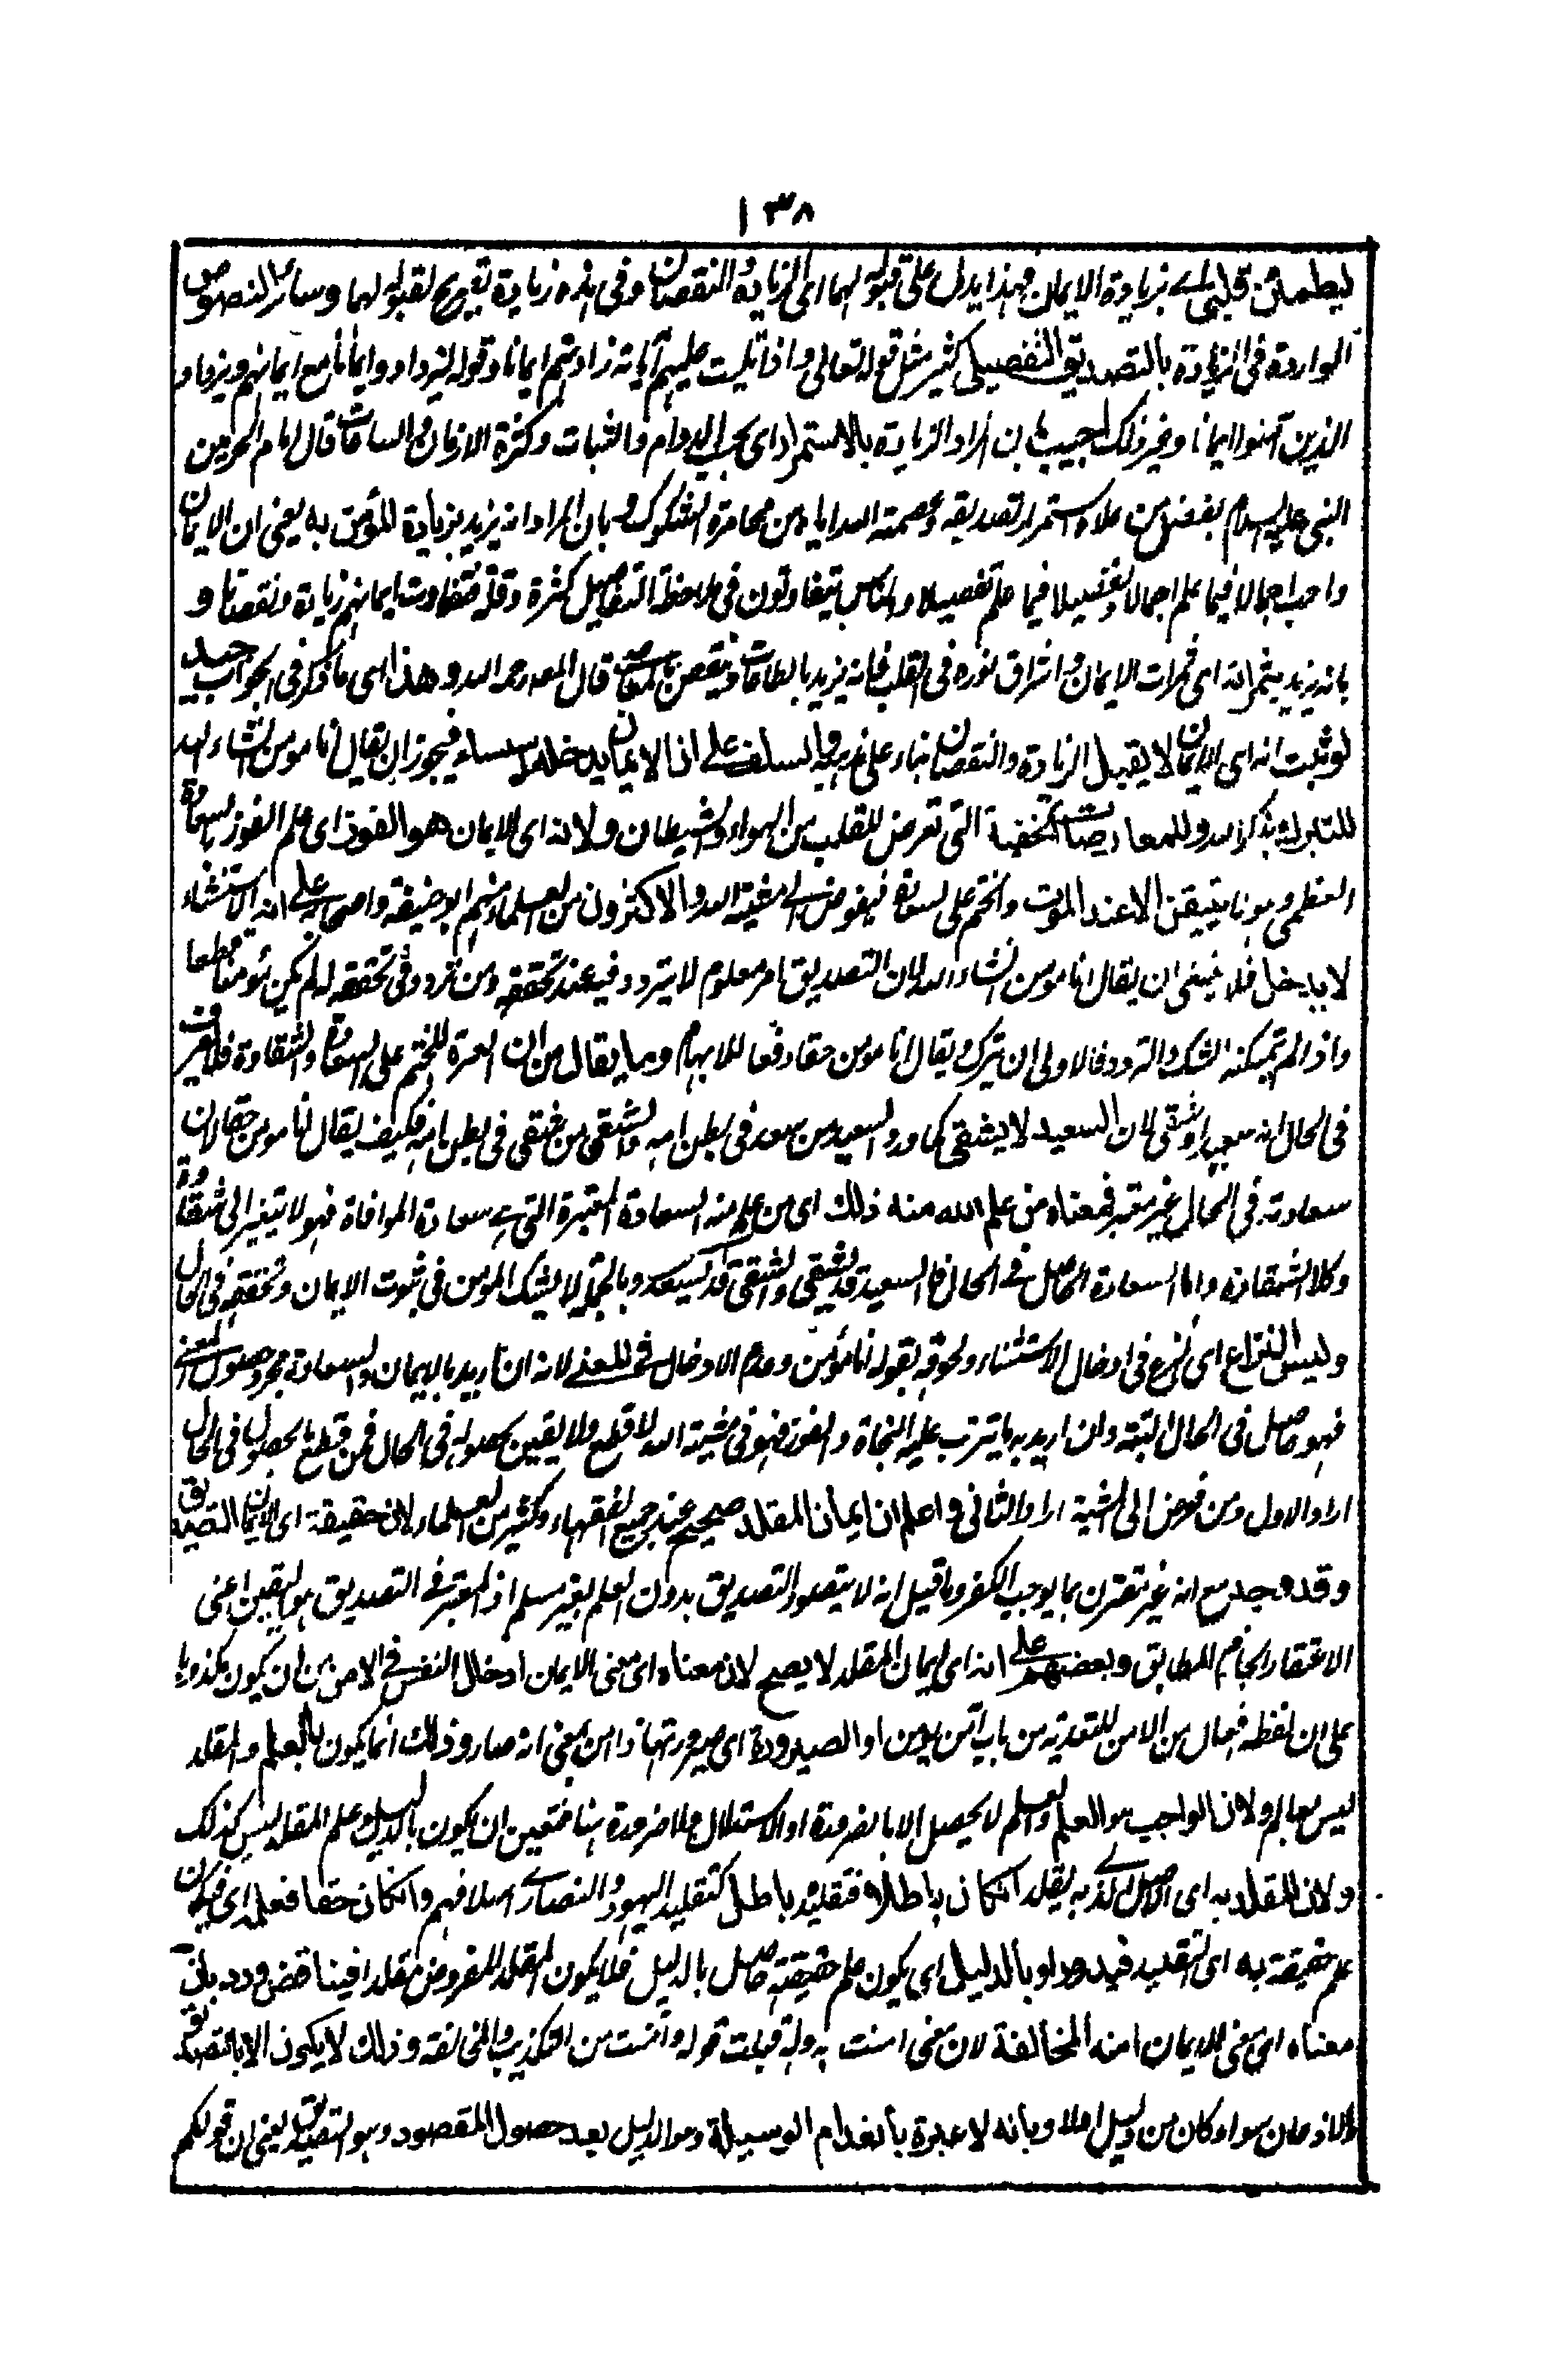 ١٣٨
ليطمئن قلبى اے بزيادة الايمان فهذا يدل على قبوله لهما اى الزيادة والنقصان وفى هذه زيادة تصريح لقبوله لهما وسائر النصوص
الواردة فى الزيادة بالتصديق التفصيلى كثير مثل قوله تعالى واذا تليت عليهم آياته زادتهم ايمانا وقوله ليزدادوا ايمانا مع ايمانهم ويزداد
الذين آمنوا ايمانا وغير ذلك اجيب بان المراد الزيادة بالاستمرار اى بحسب الدوام والثبات وكثرة الازمان والساعات قال امام الحرمين
النبى عليه السلام يفضل من عداه باستمرار تصديقه وعصمة الله اياه من مخامرة الشكوك وبان المراد انه يزيد بزيادة المؤمن به يعنى ان الايمان
واجب اجمالا فيما علم اجمالا وتفصيلا فيما علم تفصيلا والناس يتفاوتون فى ملاحظة التفاصيل كثرة وقلة فتفاوت ايمانهم زيادة ونقصانا و
بانه يزيد بثمراته اى ثمرات الايمان واشراق نوره فى القلب فانه يزيد بالطاعات وينقص بالمعاصى قال المص رحمه الله وهذا اى ما ذكر فى الجواب جيد
لو ثبت انه اى الايمان لا يقبل الزيادة والنقصان بناء على مذهبه والسلف على ان الايمان يدخله فيجوز ان يقال انا مومن انشاء الله
للتبرك بذكر الله وللمعارضات الخفية التى تعرض للقلب من الهواء والشيطان ولانه اى الايمان هو الفوز اى علم الفوز بالسعادة
العظمى وهو ما يتيقن الا عند الموت والختم على السعادة فيفوض الى مشية الله والاكثرون من العلماء منهم ابو حنيفة واصحابه على انه الاستثناء
لا يدخل فلا ينبغى ان يقال انا مومن انشاء الله لان التصديق امر معلوم لا يتردد فيه عند تحققه ومن تردد فى تحققه له لم يكن مؤمنا قطعا
واذا لم يمكنه الشك والتردد فالاولى ان يترك ويقال انا مومن حقا دفعا للابهام وما يقال من ان العبرة للختم على السعادة والشقاوة فلا يعرف
فى الحال انه سعيد او شقى لان السعيد لا يشقى كما ورد السعيد من سعد فى بطن امه والشقى من شقى فى بطن امه فكيف يقال انا مومن حقا لان
سعادته فى الحال غير معتبر فمعناه من علم الله منه ذلك اى من علم منه السعادة المعتبرة التى هے سعادة الموافاة فهو لا يتغير الى شقاوة
وكذا الشقاوة واما السعادة الحاصل فے الحال فالسعيد قد يشقى والشقى قد يسعد وبالجملة لا يشك المومن فى ثبوت الايمان وتحققه فى الحال
وليس النزاع اى نزاع فى ادخال الاستثناء ولحوقه بقوله انا مؤمن وعدم الادخال فى المعنى لانه ان اريد بالايمان والسعادة مجرد حصول المعنى
فهو حاصل فى الحال البتة وان اريد به ما يترتب عليه النجاة والفوز فهو فى مشية الله لا قطع ولا يقين بحصوله فى الحال فمن قطع بحصوله فى الحال
اراد الاول ومن فوض الى المشية اراد الثانى واعلم ان ايمان المقلد صحيح عند جميع الفقهاء وكثير من العلماء لان حقيقة اى الايمان التصديق
وقد وجد مع انه غير مقترن بما يوجب الكفر وما قيل انه لا يتصور التصديق بدون العلم بغير مسلم اذ المعتبر فى التصديق هو اليقين اعنى
الاعتقاد الجازم المطابق وبعضهم على انه اى ايمان المقلد لا يصح لان معناه اى معنى الايمان ادخال النفس فى الامن من ان يكون مكذوبا
على ان لفظه افعال من الامن للتعدية من باب آمن يومن او الصيرورة اى صيرورتها ذا امن بمعنى انه صار وذلك انما يكون بالعلم والمقلد
ليس بعالم ولان الواجب هو العلم والعلم لا يحصل الا بالضرورة او الاستدلال ولا ضرورة هنا فتعين ان يكون بالدليل وعلم المقلد ليس كذلك
ولان المقلد به اى الاصل الذے به يقلد انكان باطلا فتقليده باطل كتقليد اليهود والنصارے اسلافهم وانكان حقا فعلمه اى
علم حقيقة به اى التقليد فيدور او بالدليل اى يكون علم حقيقته حاصل بالدليل فلا يكون المقلد المفروض مقلدا فيناقض ورد بان
معناه اى معنى الايمان امنه المخالفة لان معنى امنت به وله قبلت قوله وآمنت من التكذيب والمخالفة وذلك لا يكون الا بالتصديق
والاذعان سواء كان من دليل اولا وبانه لا عبرة بانعدام الوسيلة وهو الدليل بعد حصول المقصود وهو التصديق يعنى ان قولكم